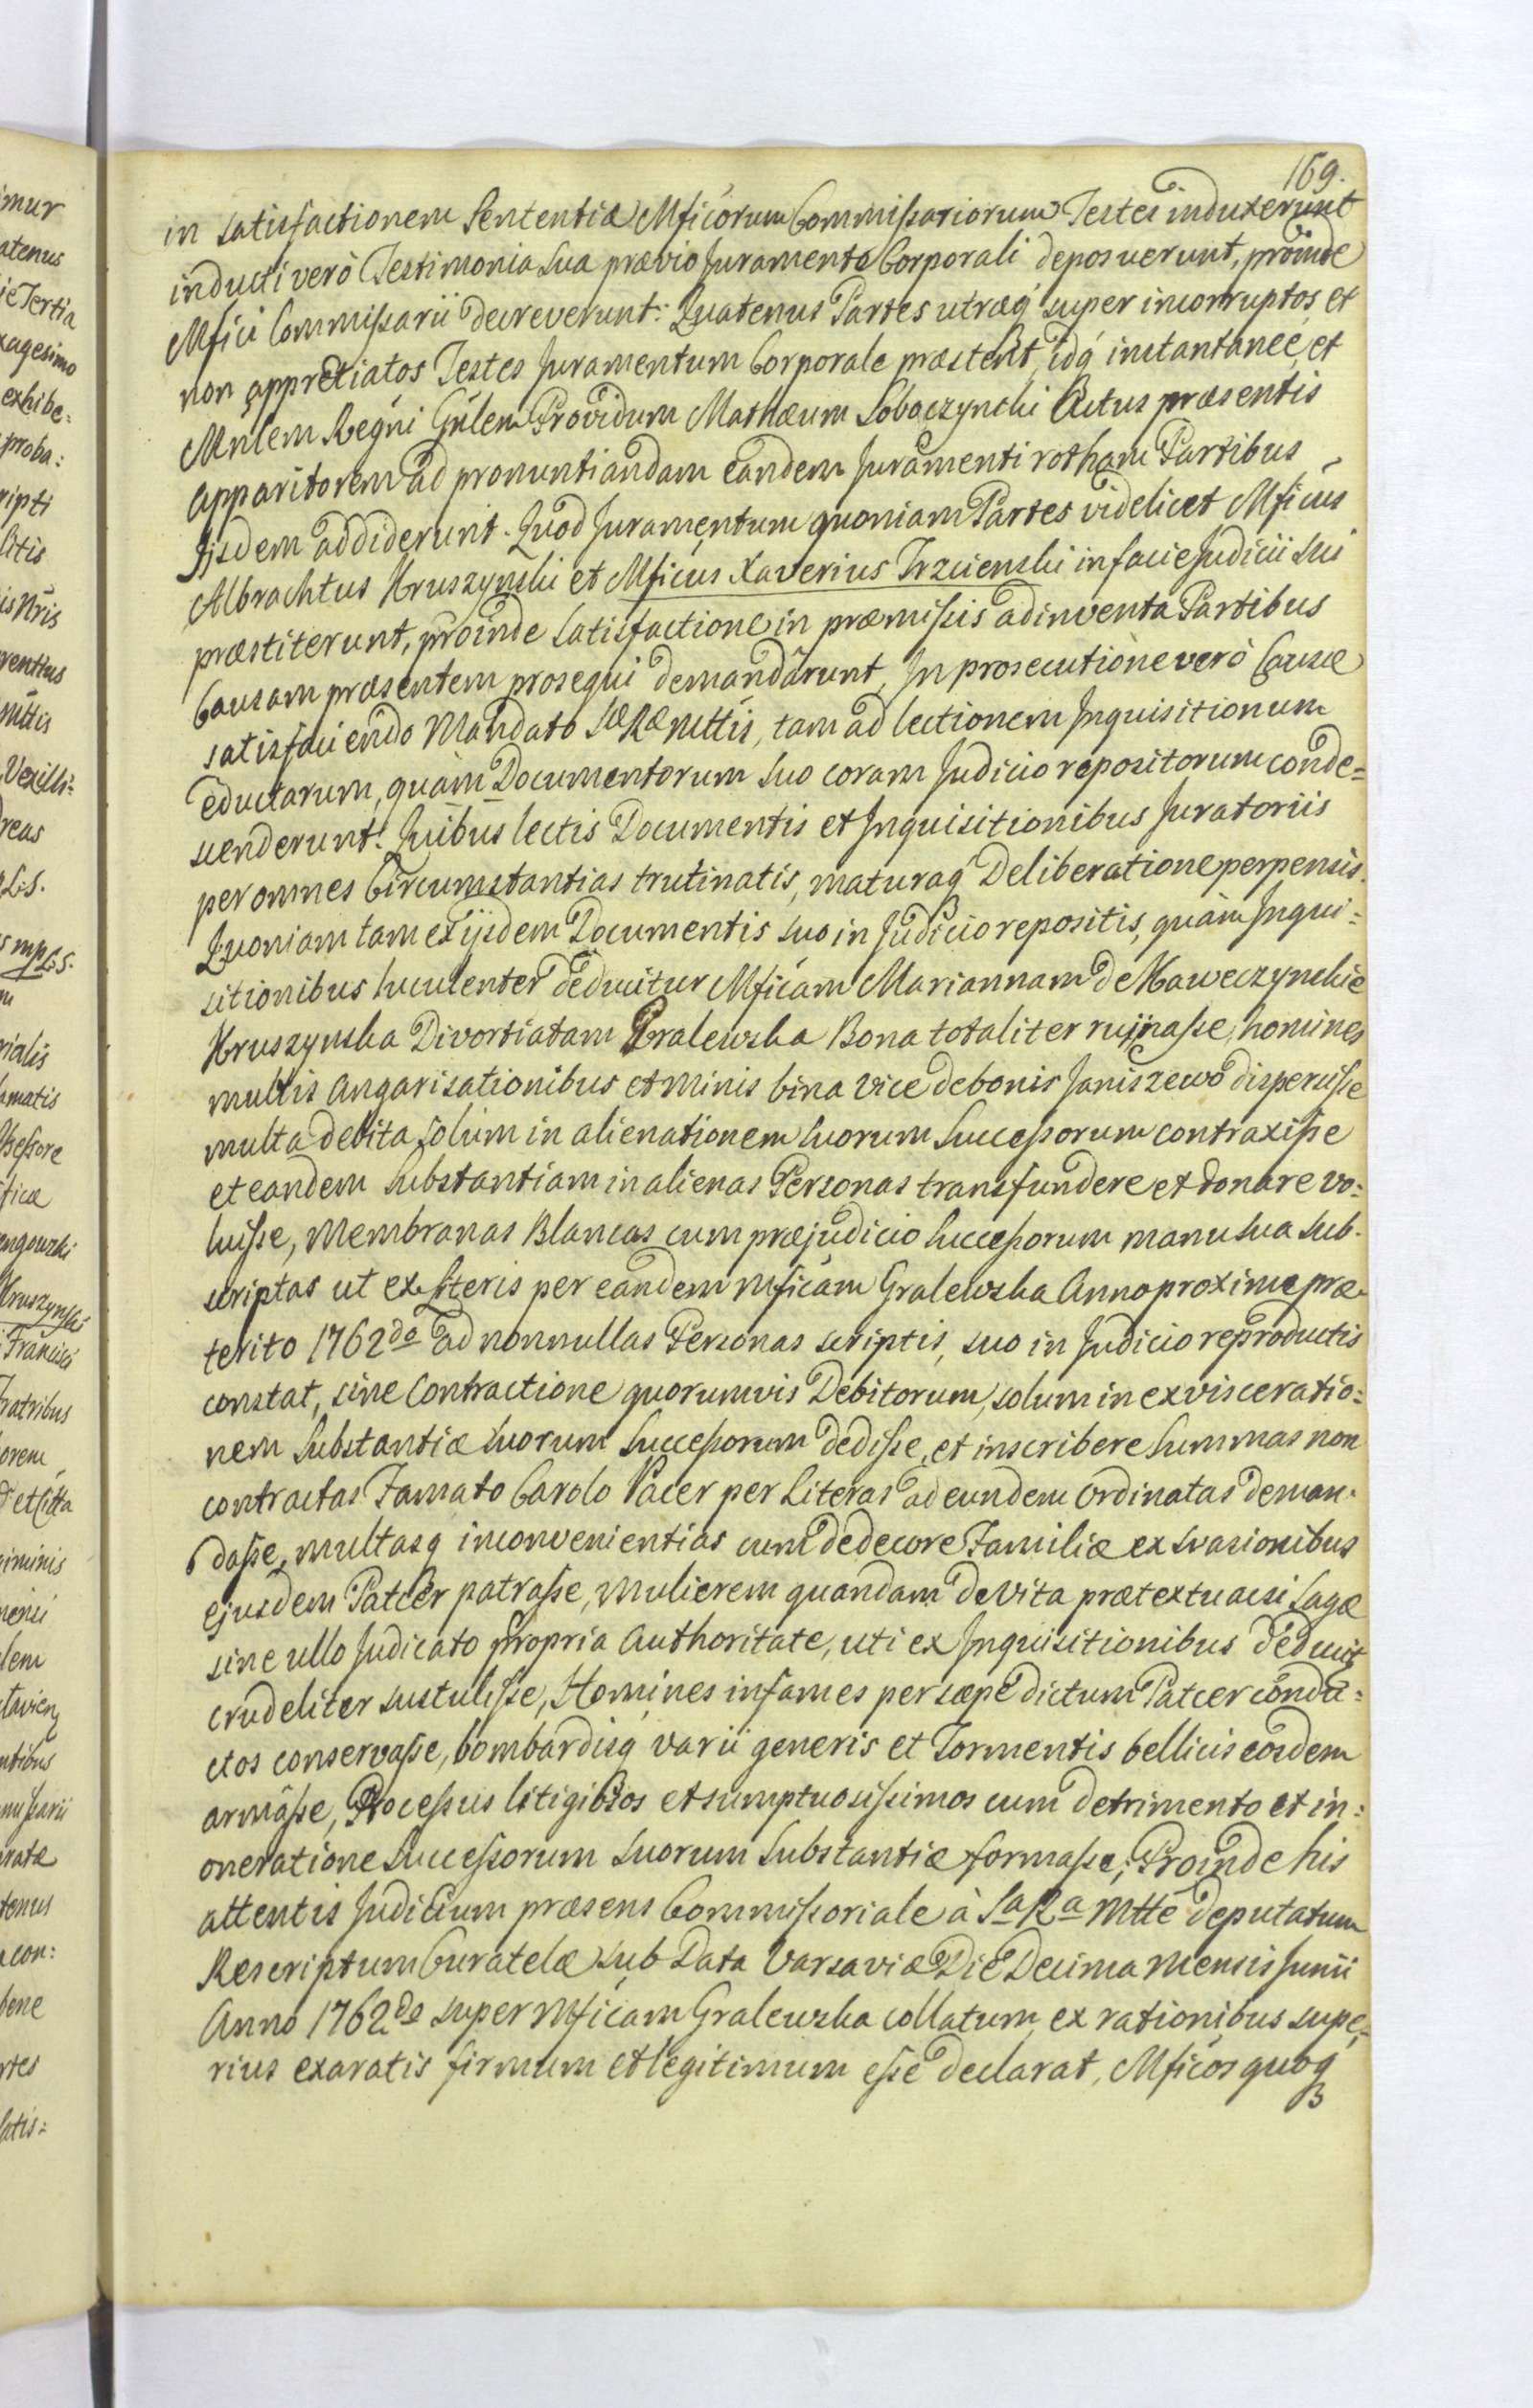 169.
in satisfactionem Sententiæ Mficorum Commissariorum Testes induxerunt
inducti verò Testimonia sua prævio Juramento Corporali deposuerunt, proinde
Mfici Commissarii decreverunt: Quatenus Partes utræq super incorruptos et
non appretiatos Testes Juramentum Corporale præstent, idq instantaneè, et
Mnlem Regni Gnlem Providum Mathæum Sobaczynski Actus præsentis
Apparitorem ad pronuntiandam eandem Juramenti rotham Partibus
Iisdem addiderunt. Quod Juramentum quoniam Partes videlicet Mficus
Albrachtus Hruszynski et Mficus Xaverius Trzcienski in facie Judicii sui
præstiterunt, proinde satisfactione in præmissis adinventa Partibus
Causam præsentem prosequi demandârunt, In prosecutione verò Causæ
satisfaciendo Mandato Sæ Ræ Mttis, tam ad lectionem Inquisitionum
eductarum, quàm Documentorum suo coram Judicio repositorum conde=
scenderunt. Quibus lectis Documentis et Inquisitionibus Juratoriis
per omnes Circumstantias trutinatis, maturaq Deliberatione perpensis.
Quoniam tam ex ijsdem Documentis suo in Judicio repositis, quàm Inqui=
sitionibus luculenter deducitur Mficam Mariannam de Kaweczynskie
Hruszynska Divortiatam Gralewska Bona totaliter rujnasse, homines
multis angarisationibus et minis bina vice de bonis Janiszewo dispersisse
multa debita solum in alienationem suorum Successorum contraxisse
et eandem Substantiam in alienas Personas transfundere et donare vo=
luisse, Membranas Blancas cum præjudicio Successorum manu sua sub=
scriptas ut ex Literis per eandem Mficam Gralewska Anno proxime præ=
terito 1762do ad nonnullas Personas scriptis, suo in Judicio reproductis
constat, sine Contractione quorumvis Debitorum, solum in exvisceratio=
nem Substantiæ suorum Successorum dedisse, et inscribere Summas non
contractas Famato Carolo Pacer per Literas ad eundem ordinatas deman=
dasse, multasq inconvenientias cum dedecore Familiæ ex svasionibus
ejusdem Patcer patrasse, mulierem quandam de vita prætextu acsi Sagæ
sine ullo Judicato propria Authoritate, uti ex Inquisitionibus deducit
crudeliter sustulisse, Homines infames per sæpe dictum Patcer condu=
ctos conservasse, bombardisq varii generis et Tormentis bellicis eosdem
armâsse, Processus litigiosos et sumptuosissimos cum detrimento et in=
oneratione Successorum suorum Substantiæ formasse; Proinde his
attentis Judicium præsens Commissoriale à Sa Ra Mtte deputatum
Rescriptum Curatelæ sub Data Varsaviæ Die Decima Mensis Junii
Anno 1762do super Mficam Gralewska collatum, ex rationibus supe=
rius exaratis firmum et legitimum esse declarat, Mficos quoq